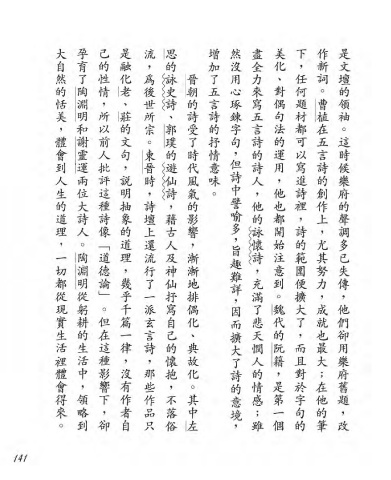 是文壇的領袖。這時候樂府的聲調多已失傳，他們卻用樂府舊題，改
作新詞。曹植在五言詩的創作上，尤其努力，成就也最大；在他的筆
下，任何題材都可以寫進詩裡，詩的範圍便擴大了，而且對於字句的
美化、對偶句法的運用，他也都開始注意到。魏代的阮籍，是第一個
盡全力來寫五言詩的詩人，他的詠懷詩，充滿了悲天憫人的情感；雖
然沒用心琢鍊字句，但詩中譬喻多，旨趣難詳，因而擴大了詩的意境，
增加了五言詩的抒情意味。
晉朝的詩受了時代風氣的影響，漸漸地排偶化、典故化。其中左
思的詠史詩、郭璞的遊仙詩，藉古人及神仙抒寫自己的懷抱，不落俗
流，為後世所宗。東晉時，詩壇上還流行了一派玄言詩，那些作品只
是融化老、莊的文句，說明抽象的道理，幾乎千篇一律，沒有作者自
己的性情，所以前人批評這種詩像「道德論」。但在這種影響下，卻
孕育了陶淵明和謝靈運兩位大詩人。陶淵明從躬耕的生活中，領略到
大自然的恬美，體會到人生的道理，一切都從現實生活裡體會得來。
141